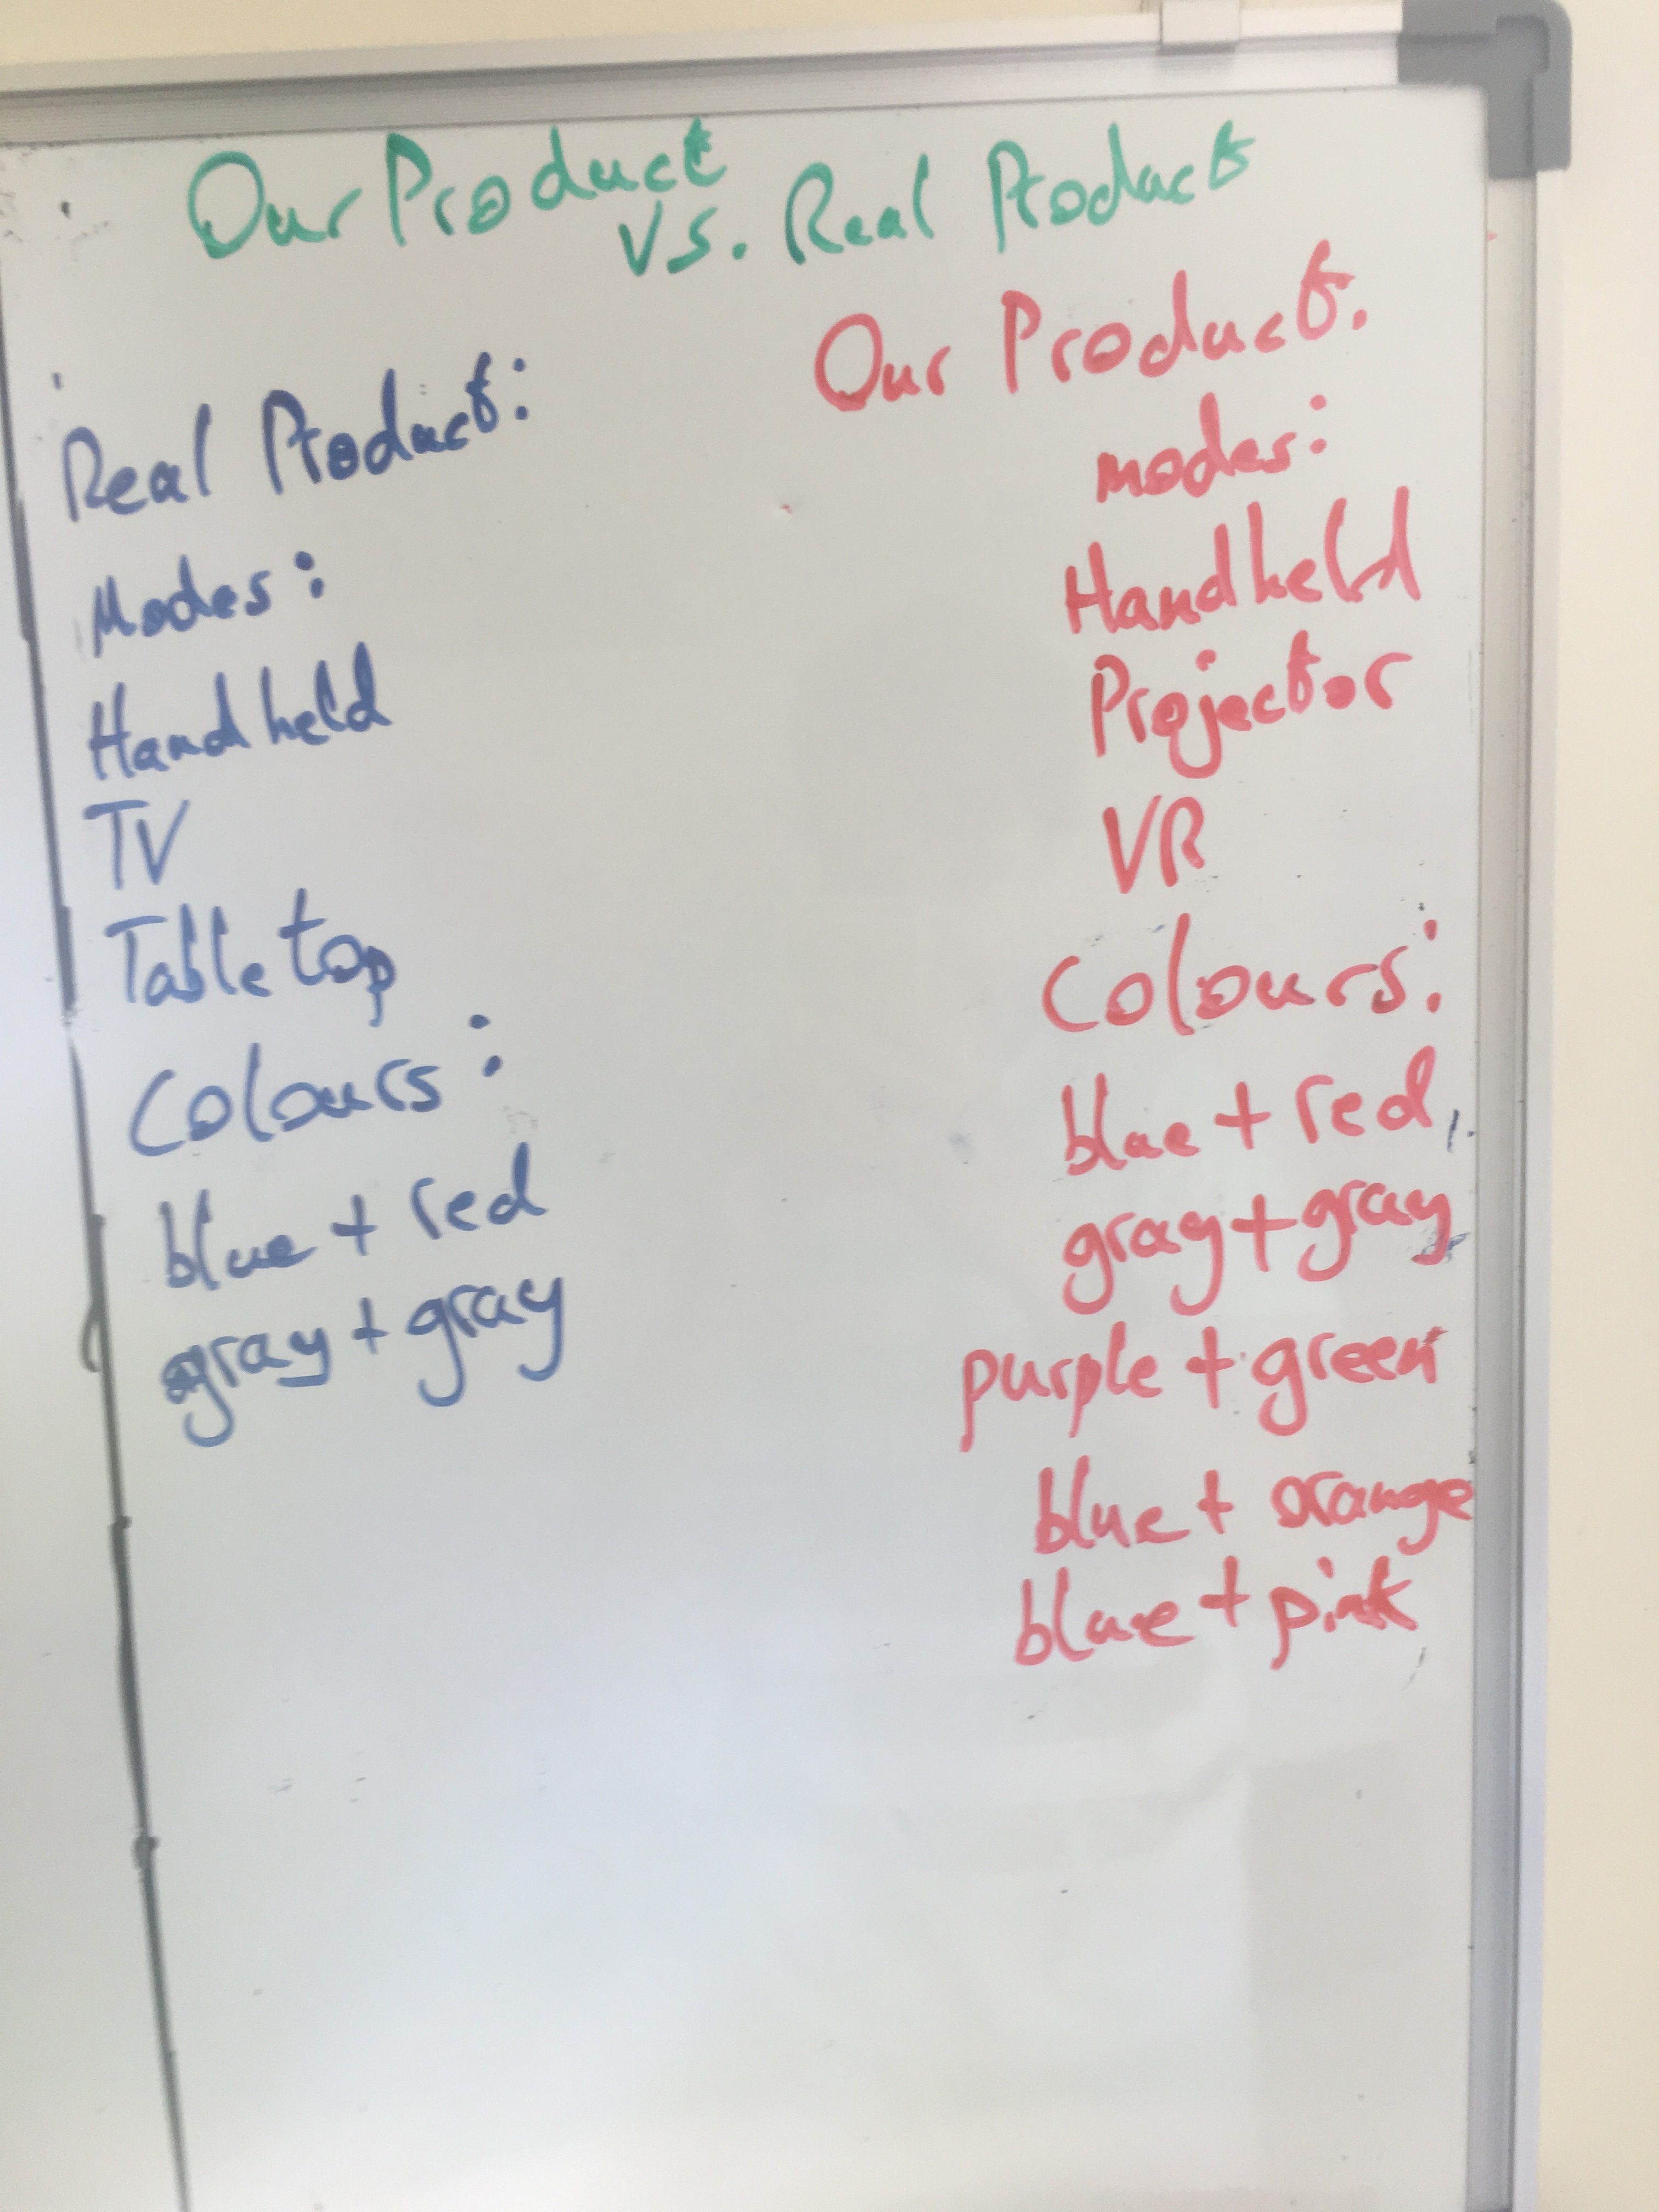 Our Product vs. Real Product
Real Product:
Modes:
Handheld
TV
Tabletop
Colours:
blue + red
gray + gray
Our Product.
modes:
Handheld
Projector
VR
Colours:
blue + red
gray + gray
purple + green
blue + orange
blue + pink